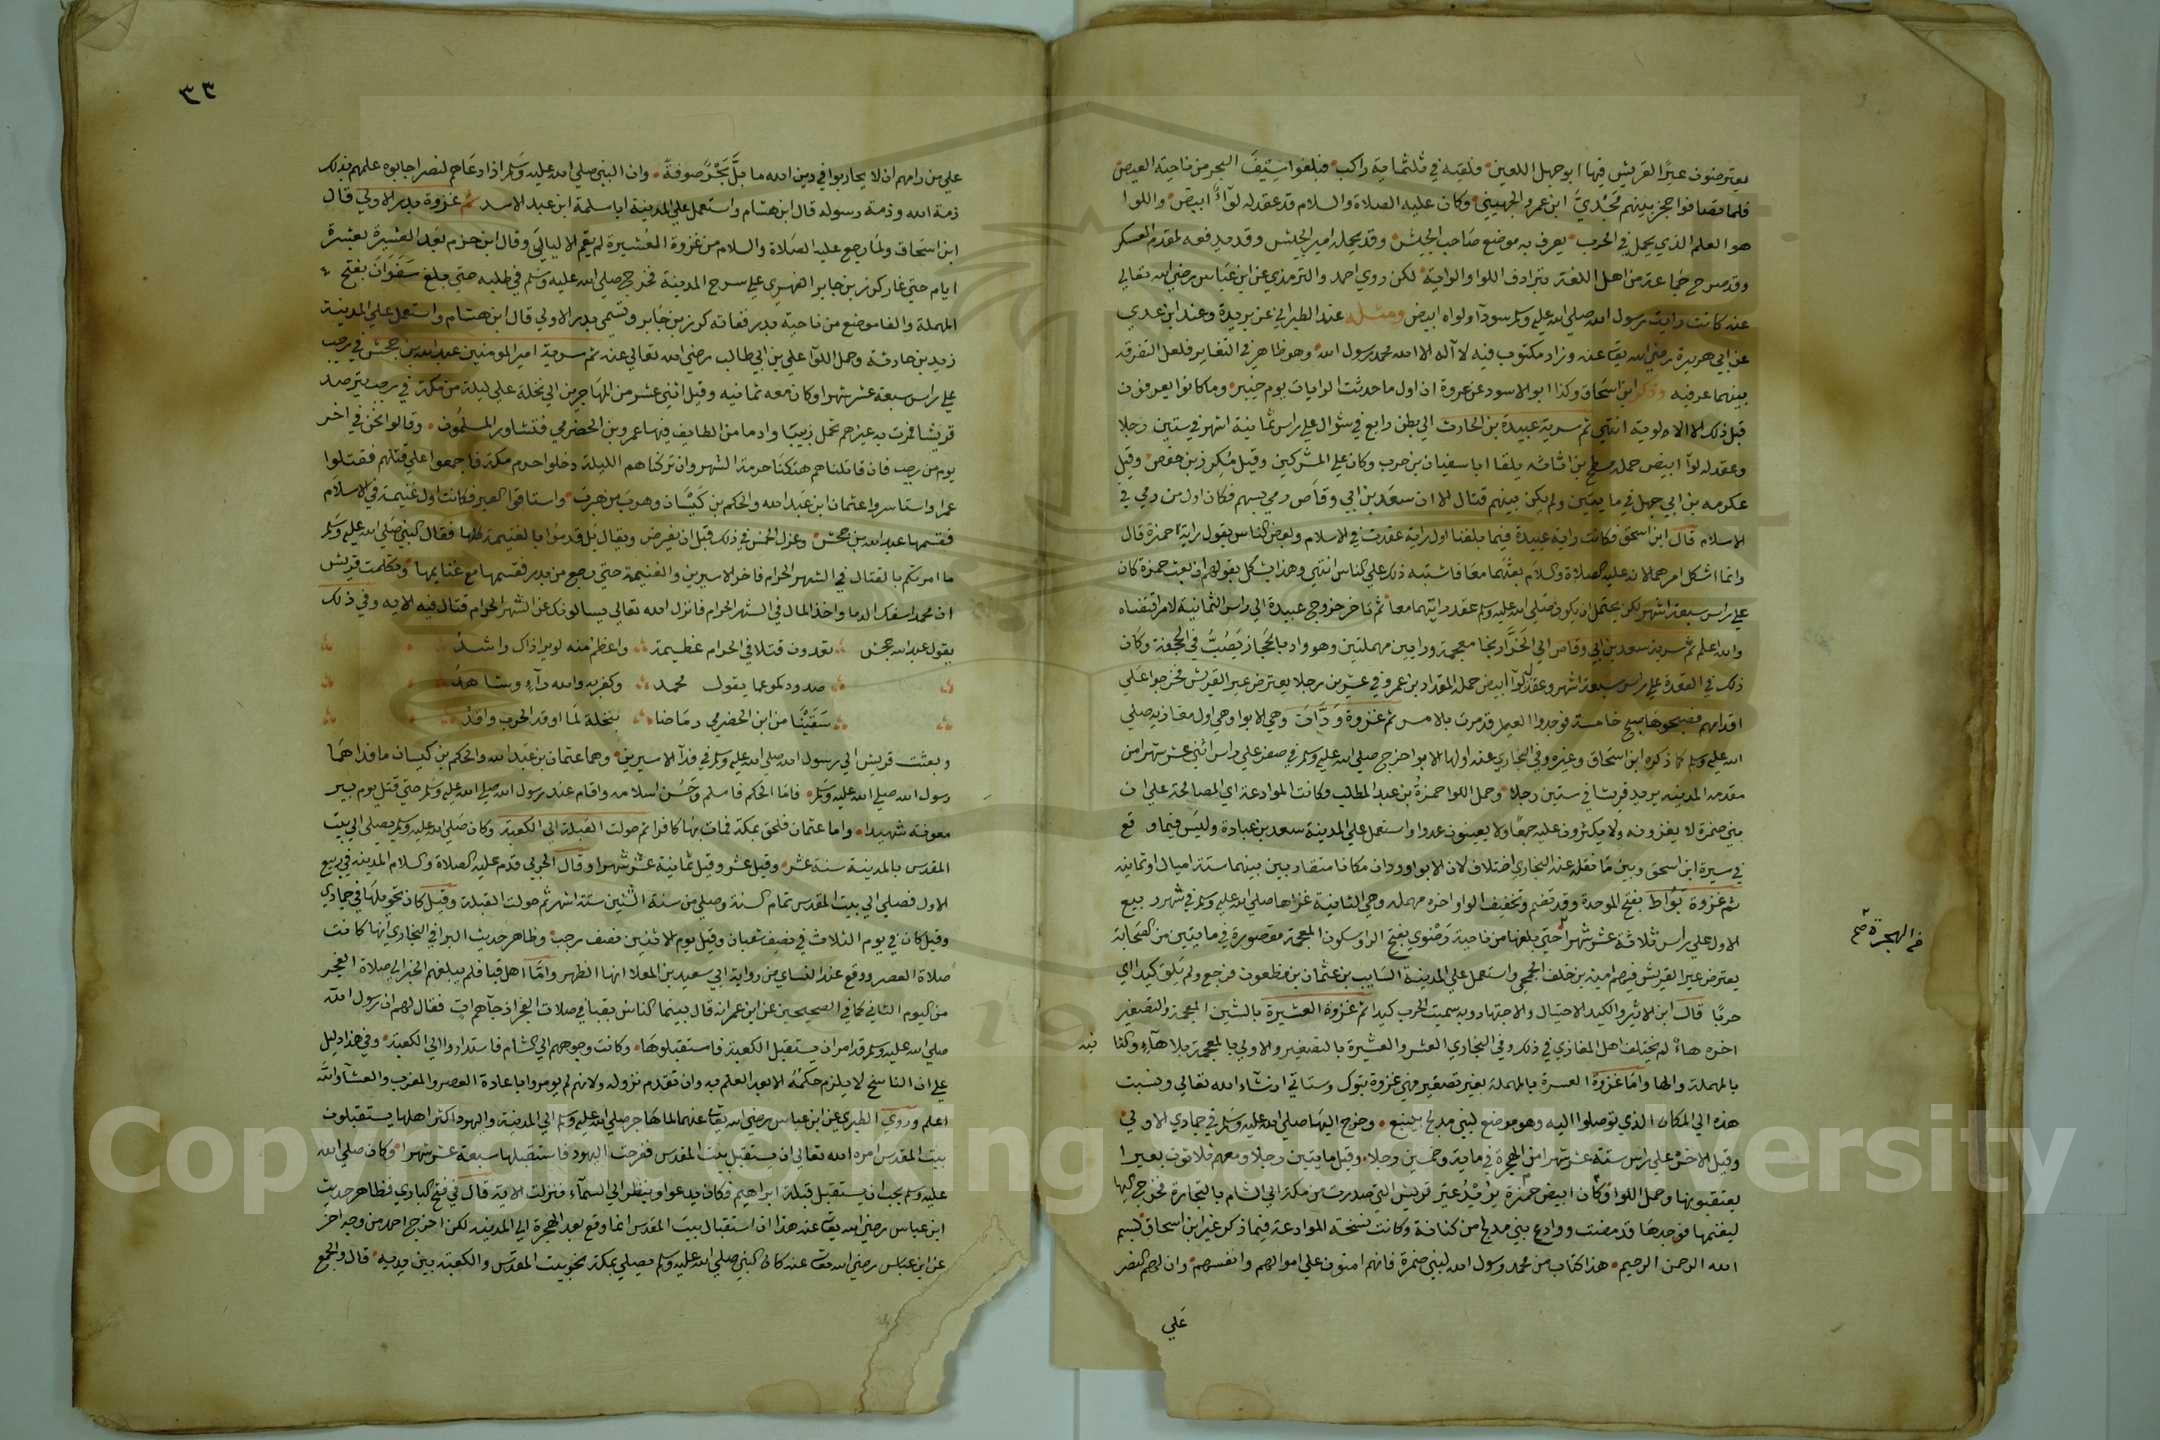 يعترضون عيرا لقريش فيها ابوجهل اللعين فلقيه في ثلثماية راكب فبلغوا سيف البحر من ناحية العيص
فلما تصافوا حجز بينهم مجدي ابن عمرو الجهيني وكان عليه الصلاة والسلام قد عقد له لوآء ابيض واللوا
هو العلم الذي يحمل في الحرب يعرف به موضع صاحب الجيش وقد يحمله امير الجيش وقد يدفعه لمقدم العسكر
وقد صرح جماعة من اهل اللغة بترادف اللوا والراية لكن روي احمد والترمذي عن ابن عباس رضي الله تعالي
عنه كانت راية رسول الله صلي الله عليه وسلم سودآ ولواه ابيض ومثله عند الطبراني عن بريدة وعند ابن عدي
عن ابي هريرة رضي الله تعا عنه وزاد مكتوب فيه لا آله الا الله محمد رسول الله وهو ظاهر في التغاير فلعل التفرقه
بينهما عرفيه وذكر ابن اسحاق وكذا ابو الاسود عن عروة ان اول ما حدثت الرايات يوم خيبر وما كانوا يعرفون
قبل ذلك الا الالوية انتهي ثم سرية عبيدة بن الحارث الي بطن رابغ في شوال علي راس ثمانية اشهر في ستين رجلا
وعقد له لوآ ابيض حمله مسطح بن اثاثه يلقا ابا سفيان بن حرب وكان علي المشركين وقيل مكرز بن حفص وقيل
عكرمه بن ابي جهل في مايتين ولم يكن بينهم قتال الا ان سعد بن ابي وقاص رمي بسهم فكان اول من رمي في
الاسلام قال ابن اسحق فكانت راية عبيدة فيما بلغنا اول راية عقدت في الاسلام وبعض الناس يقول راية حمزة قال
وانما اشكل امرهما لانه عليه الصلاة والسلام بعثهما معا فاشتبه ذلك علي الناس انتهي وهذا يشكل بقولهم ان بعث حمزة كان
علي راس سبعة اشهر لكن يحتمل ان يكون صلي الله عليه وسلم عقد رايتهما معا ثم تاخر خروج عبيدة الي راس الثمانية لامر اقتضاه
والله اعلم ثم سرية سعد بن ابي وقاص الي الخرار بخا معجمة ورايين مهملتين وهو واد بالحجاز يصب في الجحفة وكان
ذلك في القعدة علي راس سبعة اشهر وعقد له لوآ ابيض حمله المقداد بن عمرو في عشرين رجلا يعترض عير القريش فخرجوا علي
اقدامهم فصبحوها صبح خامسة فوجدوا العير قد مرت بالامس ثم غزوة ودان وهي الابوا وهي اول مغازيه صلي
الله عليه وسلم كما ذكره ابن اسحاق وغيره وفي البخاري عنه اولها الابوا خرج صلي الله عليه وسلم في صفر علي راس اثني عشر شهرا من
مقدمه المدينه يريد قريشا في ستين رجلا وحمل اللوا حمزة بن عبد المطلب فكانت الموادعة اي المصالحة علي ان
بني ضمرة لا يغزونه ولا يكثرون عليه جمعا ولا يعينون عدوا واستعمل علي المدينة سعد بن عبادة وليس فيما وقع
في سيرة ابن اسحق وبين ما نقله عنه البخاري اختلاف لان الابوا وودان مكانا متقاربين بينهما ستة اميال او ثمانيه
ثم غزوة بواط بفتح الموحدة وقد تضم وتخفيف الواو اخره مهمله وهي الثانية غزاها صلي الله عليه وسلم في شهر ربيع
الاول علي راس ثلاثة عشر شهرا حتي بلغها من ناحية رضوي بفتح الرا وسكون المعجمة مقصورة في مايتين من الصحابة
من الهجرة صح
يعترض عير القريش فيهم امية بن خلف الجمحي واستعمل علي المدينة السايب بن عثمان بن مظعون فرجع ولم يلق كيدا اي
حربا قال ابن الاثير والكيد الاحتيال والاجتهاد وبه سميت الحرب كيدا ثم غزوة العشيرة بالشين المعجمة والتصغير
اخره هاء لم يختلف اهل المغازي في ذلك وفي البخاري العشير والعسيرة بالتصغير والاولي بالمعجمة بلا هآء والثا
نيه
بالمهملة والها واما غزوة العسرة بالمهملة بغير تصغير فهي غزوة تبوك وستاتي ان شاء الله تعالي ونسبت
هذه الي المكان الذي توصلوا اليه وهو موضع لبني مدلج بينبع وخرج اليها صلي الله عليه وسلم في جمادي الاولي
وقيل الاخره علي راس ستة عشر شهرا من الهجرة في ماية وخمسين رجلا وقيل مايتين رجلا ومعهم ثلاثون بعيرا
يعتقبونها وحمل اللوا وكان ابيض حمزة يريد عير قريش التي صدرت من مكة الي الشام بالتجارة فخرج اليها
ليغنمها فوجدها قد مضت ووادع بني مدلج من كنانة وكانت نسخة الموادعة فيما ذكر غير ابن اسحاق بسم
الله الرحمن الرحيم هذا كتاب من محمد رسول الله لبني ضمرة فانهم امنون علي اموالهم وانفسهم وان لهم النصر
علي
٣٣
علي من رامهم ان لا يحاربوا في دين الله ما بل بحر صوفة وان النبي صلي الله عليه وسلم اذا دعاهم لنصر اجابوه عليهم بذلك
ذمة الله وذمة رسوله قال ابن هشام واستعمل علي المدينة ابا سلمة ابن عبد الاسد ثم غزوة بدر الاولي قال
ابن اسحاق ولما رجع عليه الصلاة والسلام من غزوة العشيرة لم يقم الا ليالي وقال ابن حزم بعد العشيرة بعشرة
ايام حتي غار كرز بن جابر الفهري علي سرح المدينة فخرج صلي الله عليه وسلم في طلبه حتي بلغ سفوان بفتح
المهملة والفا موضع من ناحية بدر ففاته كرز بن جابر وتسمي بدر الاولي قال ابن هشام واستعمل علي المدينة
زيد بن حارثة وحمل اللوآ علي بن ابي طالب رضي الله تعالي عنه ثم سرية امير المومنين عبد الله بن جحش في رجب
علي راس سبعة عشر شهرا وكان معه ثمانيه وقيل اثني عشر من المهاجرين الي نخلة علي ليلة من مكة في رجب يترصد
قريشا فمرت به عيرهم تحمل زبيبا وادما من الطايف فيها عمرو بن الحضرمي فتشاور المسلمون وقالوا نحن في اخر
يوم من رجب فان قاتلناهم هتكنا حرمة الشهر وان تركناهم الليلة دخلوا حرم مكة فاجمعوا علي قتلهم فقتلوا
عمرا واستاسروا عثمان ابن عبد الله والحكم بن كيسان وهرب من هرب واستاقوا العير فكانت اول غنيمة في الاسلام
فقسمها عبد الله بن جحش وعزل الخمس في ذلك قبل ان يفرض ويقال بل قدموا بالغنيمة كلها فقال النبي صلي الله عليه وسلم
ما امرتكم بالقتال في الشهر الحرام فاخر الاسيرين والغنيمة حتي رجع من بدر فقسمها مع غنايمها وتكلمت قريش
ان محمد اسفك الدما واخذ المال في الشهر الحرام فانزل الله تعالي يسالونك عن الشهر الحرام قتال فيه الايه وفي ذلك
يقول عبد الله جحش تعدون قتلا في الحرام عظيمة واعظم منه لو يري ذاك راشد
صدودكمو عما يقول محمد وكفر به والله رآء وشاهد
سقينا من ابن الحضرمي رماحنا بنخلة لما اوقد الحرب واقد
وبعثت قريش الي رسول الله صلي الله عليه وسلم في فدآ الاسيرين وهما عثمان بن عبد الله والحكم بن كيسان فافداهما
رسول الله صلي الله عليه وسلم فاما الحكم فاسلم وحسن اسلامه واقام عند رسول الله صلي الله عليه وسلم حتي قتل يوم بير
معونه شهيدا واما عثمان فلحق بمكة فمات بها كافرا ثم حولت القبلة الي الكعبة وكان صلي الله عليه وسلم يصلي الي بيت
المقدس بالمدينة ستة عشر وقيل عشر وقيل ثمانية عشر شهرا وقال الحربي قدم عليه الصلاة والسلام المدينه في ربيع
الاول فصلي الي بيت المقدس تمام السنة وصلي من سنة اثنين ستة اشهر ثم حولت القبلة وقيل كان تحويلها في جمادي
وقيل كان في يوم الثلاث في نصف شعبان وقيل يوم الاثنين نصف رجب وظاهر حديث البرا في البخاري انها كانت
صلاة العصر ووقع عند النساي من رواية ابي سعيد بن المعلا انها الظهر واما اهل قبا فلم يبلغهم الخبر الي صلاة الفجر
من اليوم الثاني كما في الصحيحين عن ابن عمر انه قال بينما الناس بقبا في صلات الفجر اذ جآهم ات فقال لهم ان رسول الله
صلي الله عليه وسلم قد امر ان يستقبل الكعبة فاستقبلوها وكانت وجوههم الي الشام فاستداروا الي الكعبة وفي هذا دليل
علي ان الناسخ لا يلزم حكمه الا بعد العلم به وان تقدم نزوله ولانهم لم يومروا باعادة العصر والمغرب والعشآ والله
اعلم وروي الطبري عن ابن عباس رضي الله تعا عنهما لما هاجر صلي الله عليه وسلم الي المدينة واليهود اكثر اهلها يستقبلون
بيت المقدس امره الله تعالي ان يستقبل بيت المقدس ففرحت اليهود فاستقبلها سبعة عشر شهرا وكان صلي الله
عليه وسلم يحب ان يستقبل قبلة ابراهيم فكان يدعوا وينظر الي السمآء فنزلت الاية قال في فتح الباري فظاهر حديث
ابن عباس رضي الله تعا عنه هذا ان استقبال بيت المقدس انما وقع بعد الهجرة الي المدينه لكن اخرج احمد من وجه اخر
عن ابن عباس رضي الله تعا عنه كان النبي صلي الله عليه وسلم يصلي بمكة نحو بيت المقدس والكعبة بين يديه قال والجمع